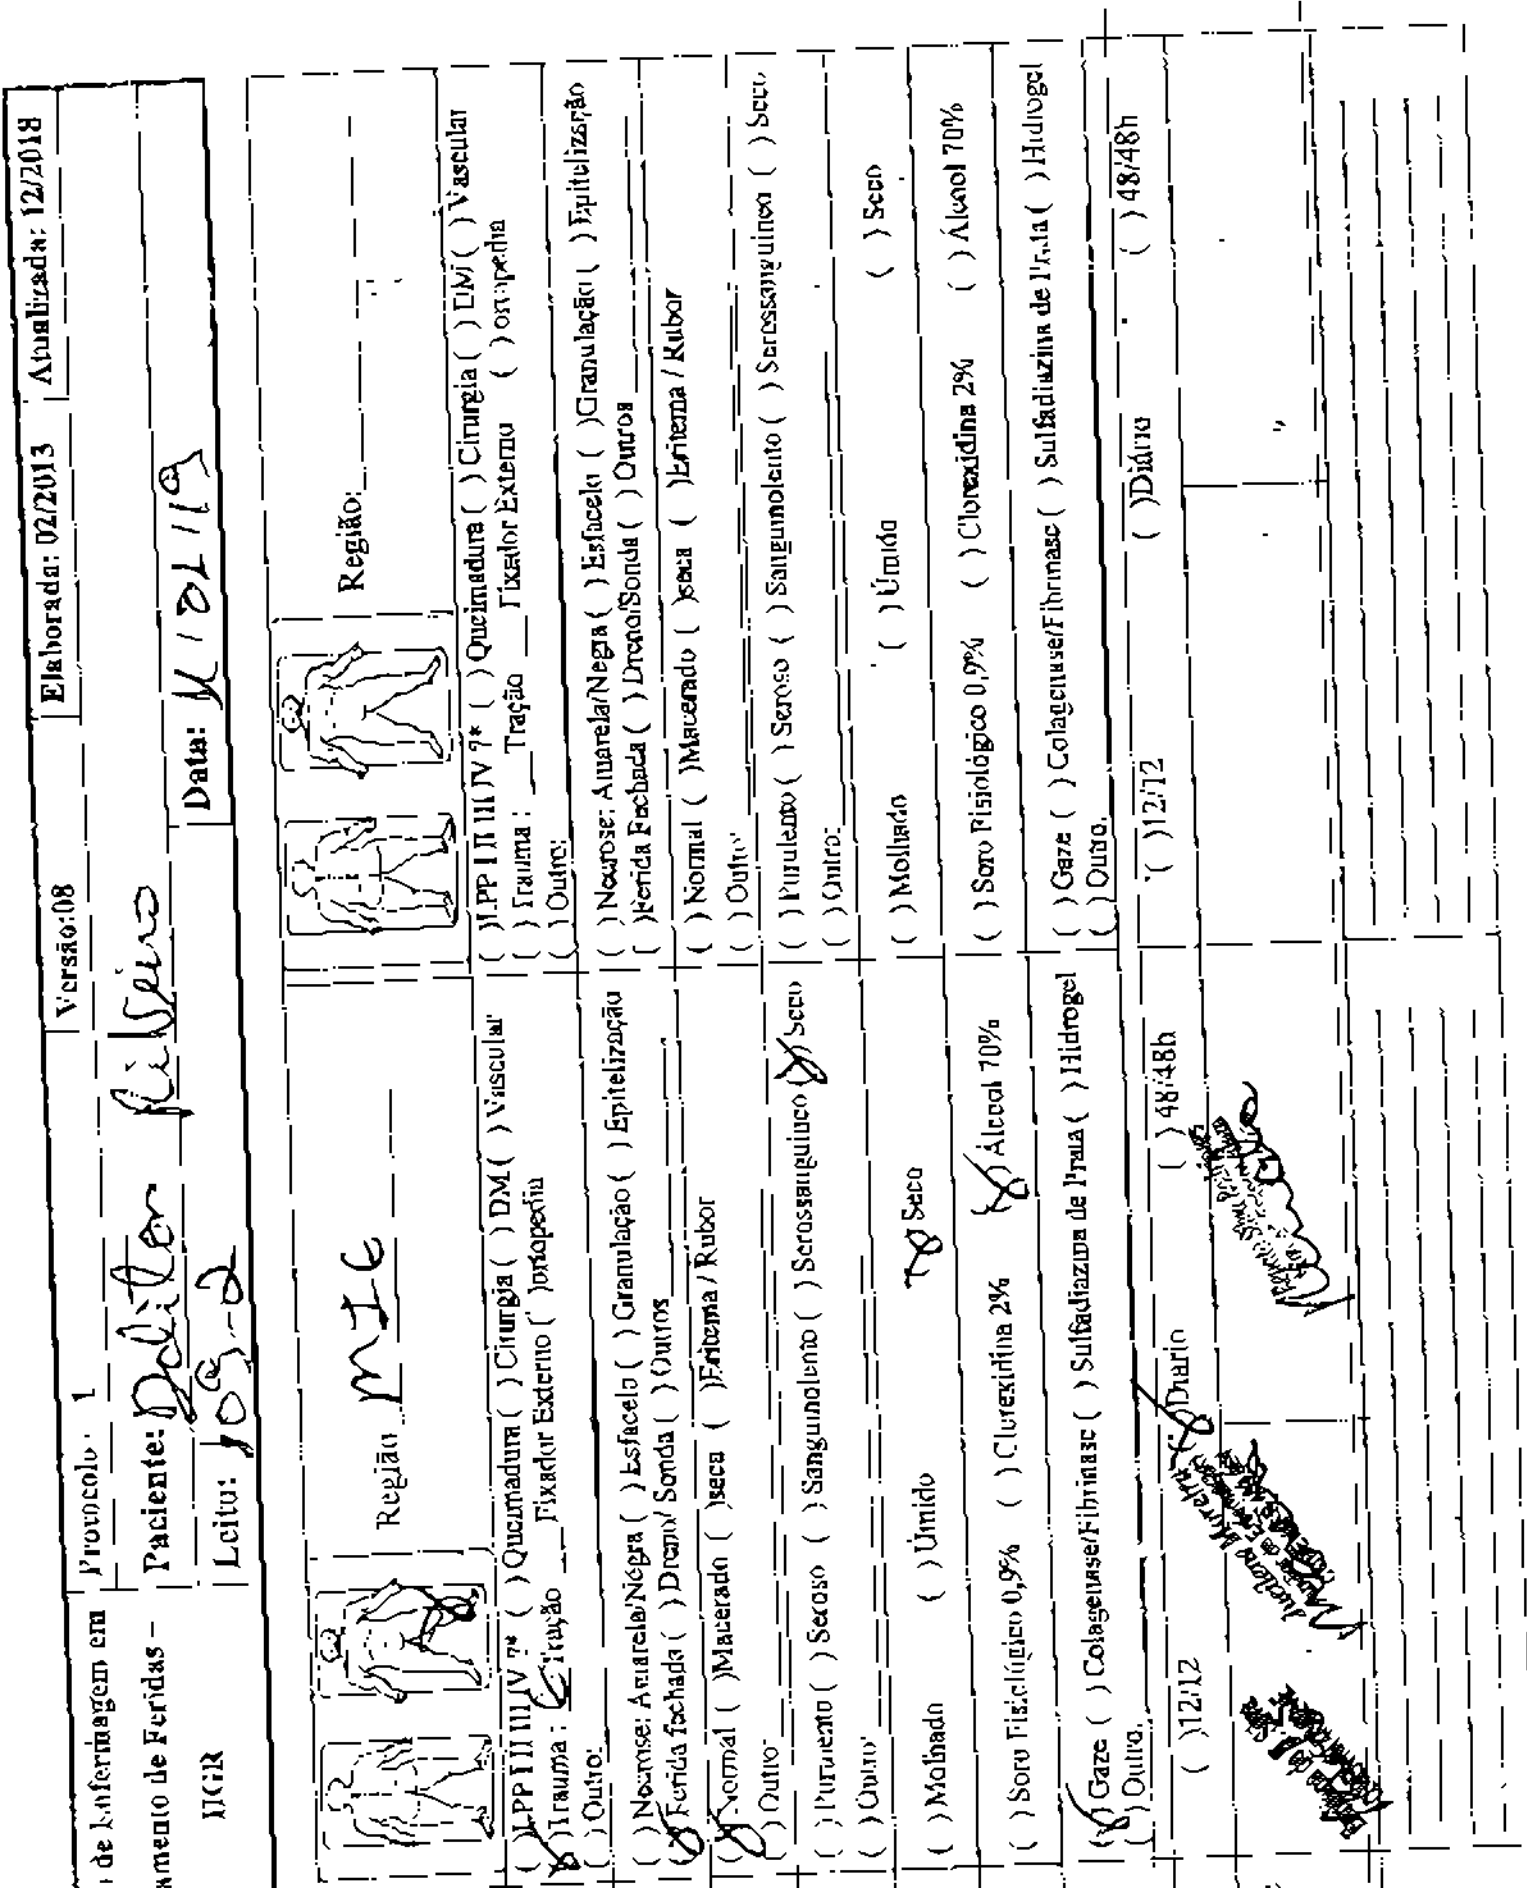 de Enfermagem em
amento de Feridas –
HGR
Protocolo: 1
Versão:08
Elaborada: 02/2013
Atualizada: 12/2018
Paciente:
Data:
Leito: 109-2
Região MIE
( )LPP I II III IV ?* ( )Queimadura ( )Cirurgia ( )DM ( )Vascular
( )Trauma: Tração Fixador Externo ( )ortopedia
( )Outro:
( )Necrose: Amarela/Negra ( )Esfacelo ( )Granulação ( )Epitelização
( )Ferida fechada ( )Dreno/Sonda ( )Outros
( )Normal ( )Macerado ( )seca ( )Eritema / Rubor
( )Outro:
( )Purulento ( )Seroso ( )Sanguinolento ( )Serossanguineo (X)Seco
( )Outro:
( )Molhado ( )Úmido (X)Seco
( )Soro Fisiológico 0,9% ( )Clorexidina 2% (X)Álcool 70%
(X)Gaze ( )Colagenase/Fibrinase ( )Sulfadiazina de Prata ( )Hidrogel
( )Outro.
( )12/12 (X)Diário ( )48/48h
Região:
( )LPP I II III IV ?* ( )Queimadura ( )Cirurgia ( )DM ( )Vascular
( )Trauma: Tração Fixador Externo ( )ortopedia
( )Outro:
( )Necrose: Amarela/Negra ( )Esfacelo ( )Granulação ( )Epitelização
( )Ferida Fechada ( )Dreno/Sonda ( )Outros
( )Normal ( )Macerado ( )seca ( )Eritema / Rubor
( )Outro:
( )Purulento ( )Seroso ( )Sanguinolento ( )Serossanguineo ( )Seco
( )Outro:
( )Molhado ( )Úmido ( )Seco
( )Soro Fisiológico 0,9% ( )Clorexidina 2% ( )Álcool 70%
( )Gaze ( )Colagenase/Fibrinase ( )Sulfadiazina de Prata ( )Hidrogel
( )Outro.
( )12/12 ( )Diário ( )48/48h